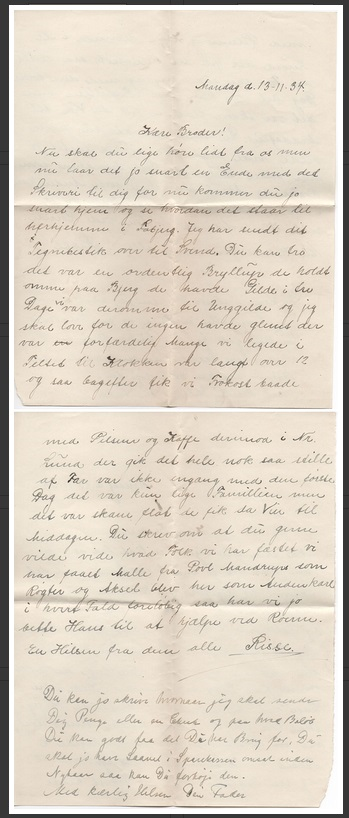 Mandag d. 13-11-34.
Kære Broder!
Nu skal du lige høre lidt fra os men
nu laar det jo snart en Ende med det
Skriveri til dig for nu kommer du jo
snart hjem og se hvordan det staar til
herhjemme i Jeg har sendt dit
Tegnebestik over til Svend. Du kan tro
det var en ordentlig Bryllup de holdt
omme paa Bjerg de havde Gilde i tre
Dage vi var deromme til Unggilde og jeg
skal love for de ingen havde glemt der
var en forfærdelig Mange vi legede i
Teltet til Klokken var langt over 12
og saa bagefter fik vi Frokost baade
med Pilsner og Kaffe derimod i Nr.
Lund der gik det hele nok saa stille
af Far var ikke engang med den første
Dag det var kun lige Famillien men
det var skam flot de fik da Vin til
Middagen. Du skrev om at du gerne
vilde vide hvad Folk vi har fæstet vi
har faaet Malle fra Povl som
Røgter og Aksel blev her som Andenkarl
i hvert Fald foreløbig saa har vi jo
Hans til at hjælpe ved Roerne.
En Hilsen fra dem alle Risse.
Du kan jo skrive hvornaar jeg skal sende
Dig Penge eller en og paa hvad Beløb
Du kan godt faa det Du har Brug for. Du
skal jo have i Sparekassen omsat inden
Nytaar saa kan Du forhøje den.
Med kærlig Hilsen Din Fader